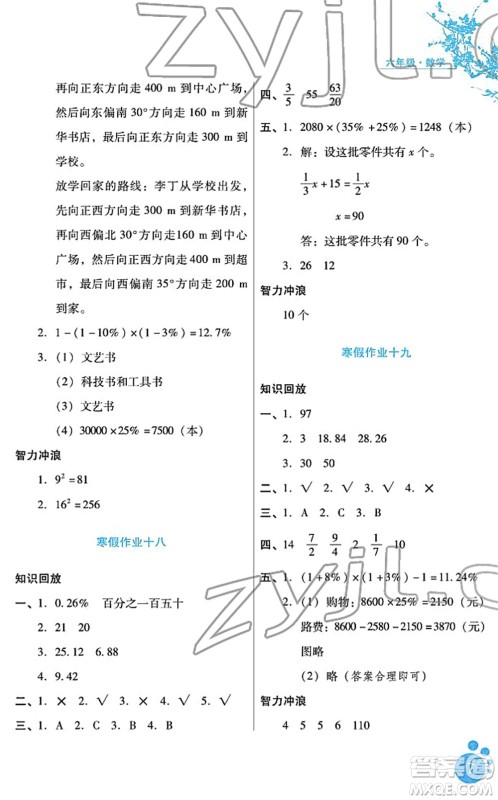 六年级·数学
再向正东方向走 400 m 到中心广场，
然后向东偏南 30°方向走 160 m 到新
华书店，最后向正东方向走 300 m 到
学校。
放学回家的路线：李丁从学校出发，
先向正西方向走 300 m 到新华书店，
再向西偏北 30°方向走160 m到中心
广场，从中心广场向正西走 400 m到超
市，最后向西偏南 35°方向走 200 m
到家。
2. 1－(1－10%)×(1－3%)＝12.7%
3. (1) 文艺书
(2) 科技书和工具书
(3) 文艺书
(4) 30000×25%＝7500(本)
智力冲浪
1. 9²＝81
2. 16²＝256
寒假作业十八
知识回放
一、1. 0.26% 百分之一百五十
2. 21 20
3. 25.12 6.88
4. 9.42
二、1. × 2. √ 3. × 4. √ 5. √
三、1. A 2. C 3. B 4. B
四、3/5 55 63/20
五、1. 2080×(35%＋25%)＝1248(本)
2. 解：设这批零件共有 x 个。
1/3x＋15＝1/2x
x＝90
答：这批零件共有 90 个。
3. 26 12
智力冲浪
10 个
寒假作业十九
知识回放
一、1. 97
2. 3 18.84 28.26
3. 30 50
二、1. √ 2. √ 3. √ 4. ×
三、1. B 2. A 3. C 4. B
四、14 7/2 9/4 2 1/7 10
五、1. (1＋8%)×(1＋3%)－1＝11.24%
2. (1) 购物：8600×25%＝2150 (元)
路费：8600－2580－2150＝3870 (元)
图略
(2) 略 (答案合理即可)
智力冲浪
4 5 5 6 110
zyjl.cn
zyjl.cn
答案圈
MXQE.COM